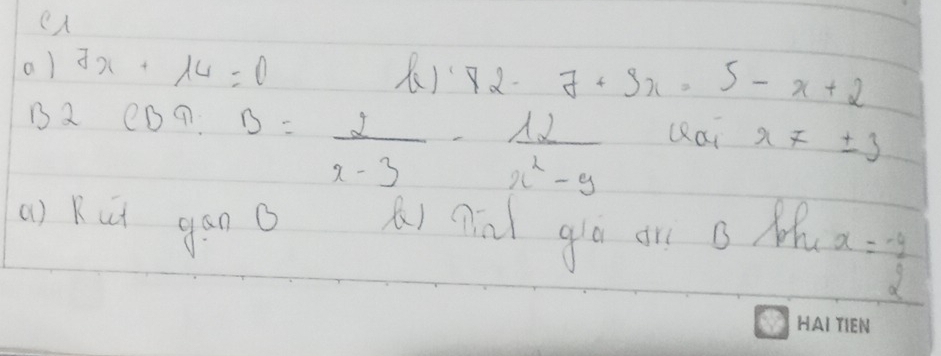 C1
a) 7x + 14 = 0 b) 72 - 7 + 3x = 5 - x + 2
B2 CBT: B = 2/(x - 3) - 12/(x² - 9) với x ≠ ±3
a) Rút gọn B b) Tính giá trị B khi x = -9/2
HAI TIEN